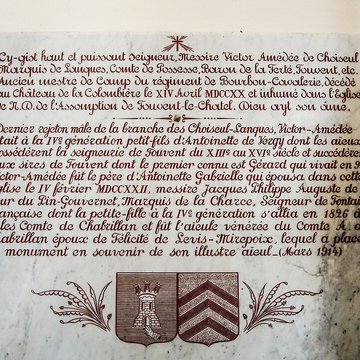 Cy-gist haut et puissant Seigneur, Messire Victor Amédée de Choiseul
Marquis de Lanques, Comte de Fossesse, Baron de la Ferté, Fouvent, etc.
Ancien mestre de Camp du régiment de Bourbon-Cavalerie, décédé
au Château de la Colombière le XIV Avril MDCCXX et inhumé dans l'église
de N.D. de l'Assomption de Fouvent-le-Chatel. Dieu ayt son âme.
Dernier rejeton mâle de la branche des Choiseul-Lanques, Victor-Amédée
était à la IVe génération petit-fils d'Antoinette de Vergy dont les aïeux
possédèrent la seigneurie de Fouvent du XIIIe au XVIe siècle et succédèrent
aux sires de Fouvent dont le premier connu est Gérard qui vivait en
Victor-Amédée fût le père d'Antoinette Gabrielle qui épousa dans cette
église le IV février MDCCXXII, messire Jacques Philippe Auguste de
Tour du Pin-Gouvernet, Marquis de la Charce, Seigneur de Fontaine
Française dont la petite-fille à la IVe génération s'allia en 1826 à
les Comte de Chabrillan et fût l'aïeule vénérée du Comte A.
Chabrillan époux de Félicité de Levis-Mirepoix, lequel a placé
monument en souvenir de son illustre aïeul._(Mars 1914)